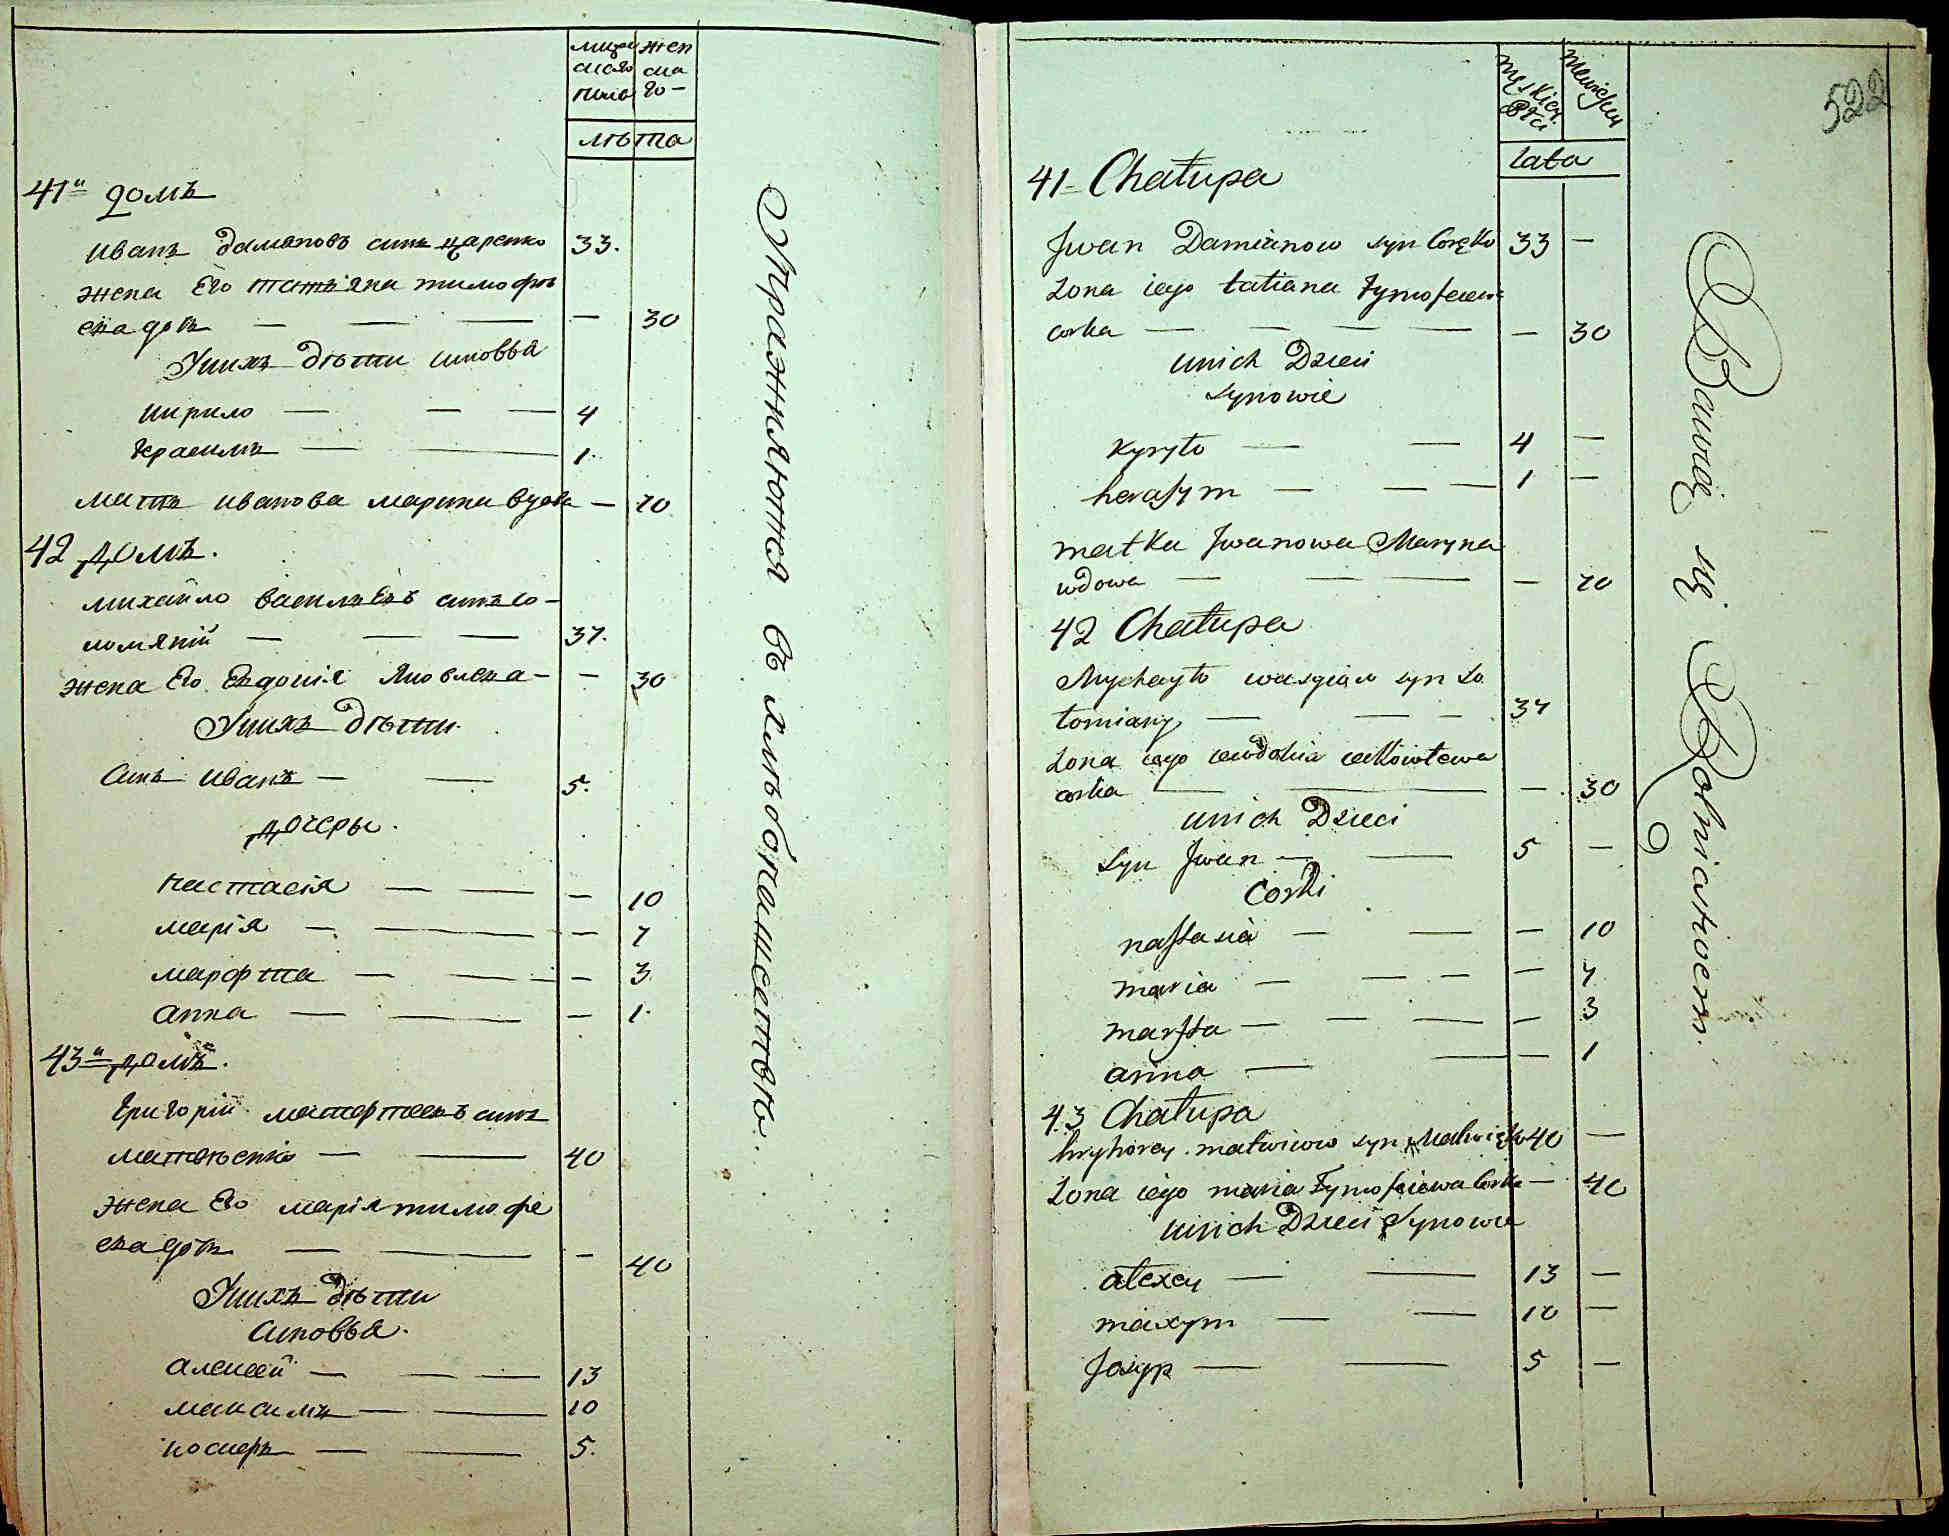 мужеск
ского
пола
жен
ска
го —
лѣта
41й домъ
иванъ дамяновъ синъ царенко 33.
жена Его татіяна тимофѣ
ева доч — — — — 30
Унихъ дѣти синовья
кирило — — — 4
герасимъ — — 1.
матъ иванова марина вдова — 70
42 домъ.
михайло василъевъ синъ со-
ломяній — — — 37.
жена Его Евдокія Яковлева — — 30
Унихъ дѣти.
Синъ иванъ — — 5.
дочеры.
настасія — — — 10
марія — — — 7
марфта — — — 3
анна — — — 1.
43й домъ.
григорій матфтеевъ синъ
матвѣенко — — 40
жена Его марія тимофе
ева доч — — — 40
Унихъ дѣти
синовья.
алексей — — — 13
максимъ — — 10
иосиеръ — — 5.
Упражняюжся въ хлѣбопашествѣ.
522
męskiey
Płci
żenskiey
lata
41 Chałupa
Jwan Damianow syn Caręko 33 —
żona iego tatiana Tymofeiewa
corka — — — — — 30
unich Dzieci
synowie
Kyryło — — 4 —
herasym — — — 1 —
matka Jwanowa Maryna
wdowa — — — — 70
42 Chałupa
Mychayło wasyciow syn So
łomiany — — — 37
żona iego iewdokia iakowlewa
corka — — — 30
unich Dzieci
syn Jwan — — 5 —
Corki
nastasia — — — 10
maria — — — — 7
marfta — — — — 3
anna — — — 1
43 Chałupa
hryhorey matwiiow syn Matwięko 40 —
żona iego maria Tymofeiewa Corka — 40
unich Dzieci Synowie
alexey — — 13 —
maxym — — 10 —
Josyp — — 5 —
Bawią się Rolnictwem.